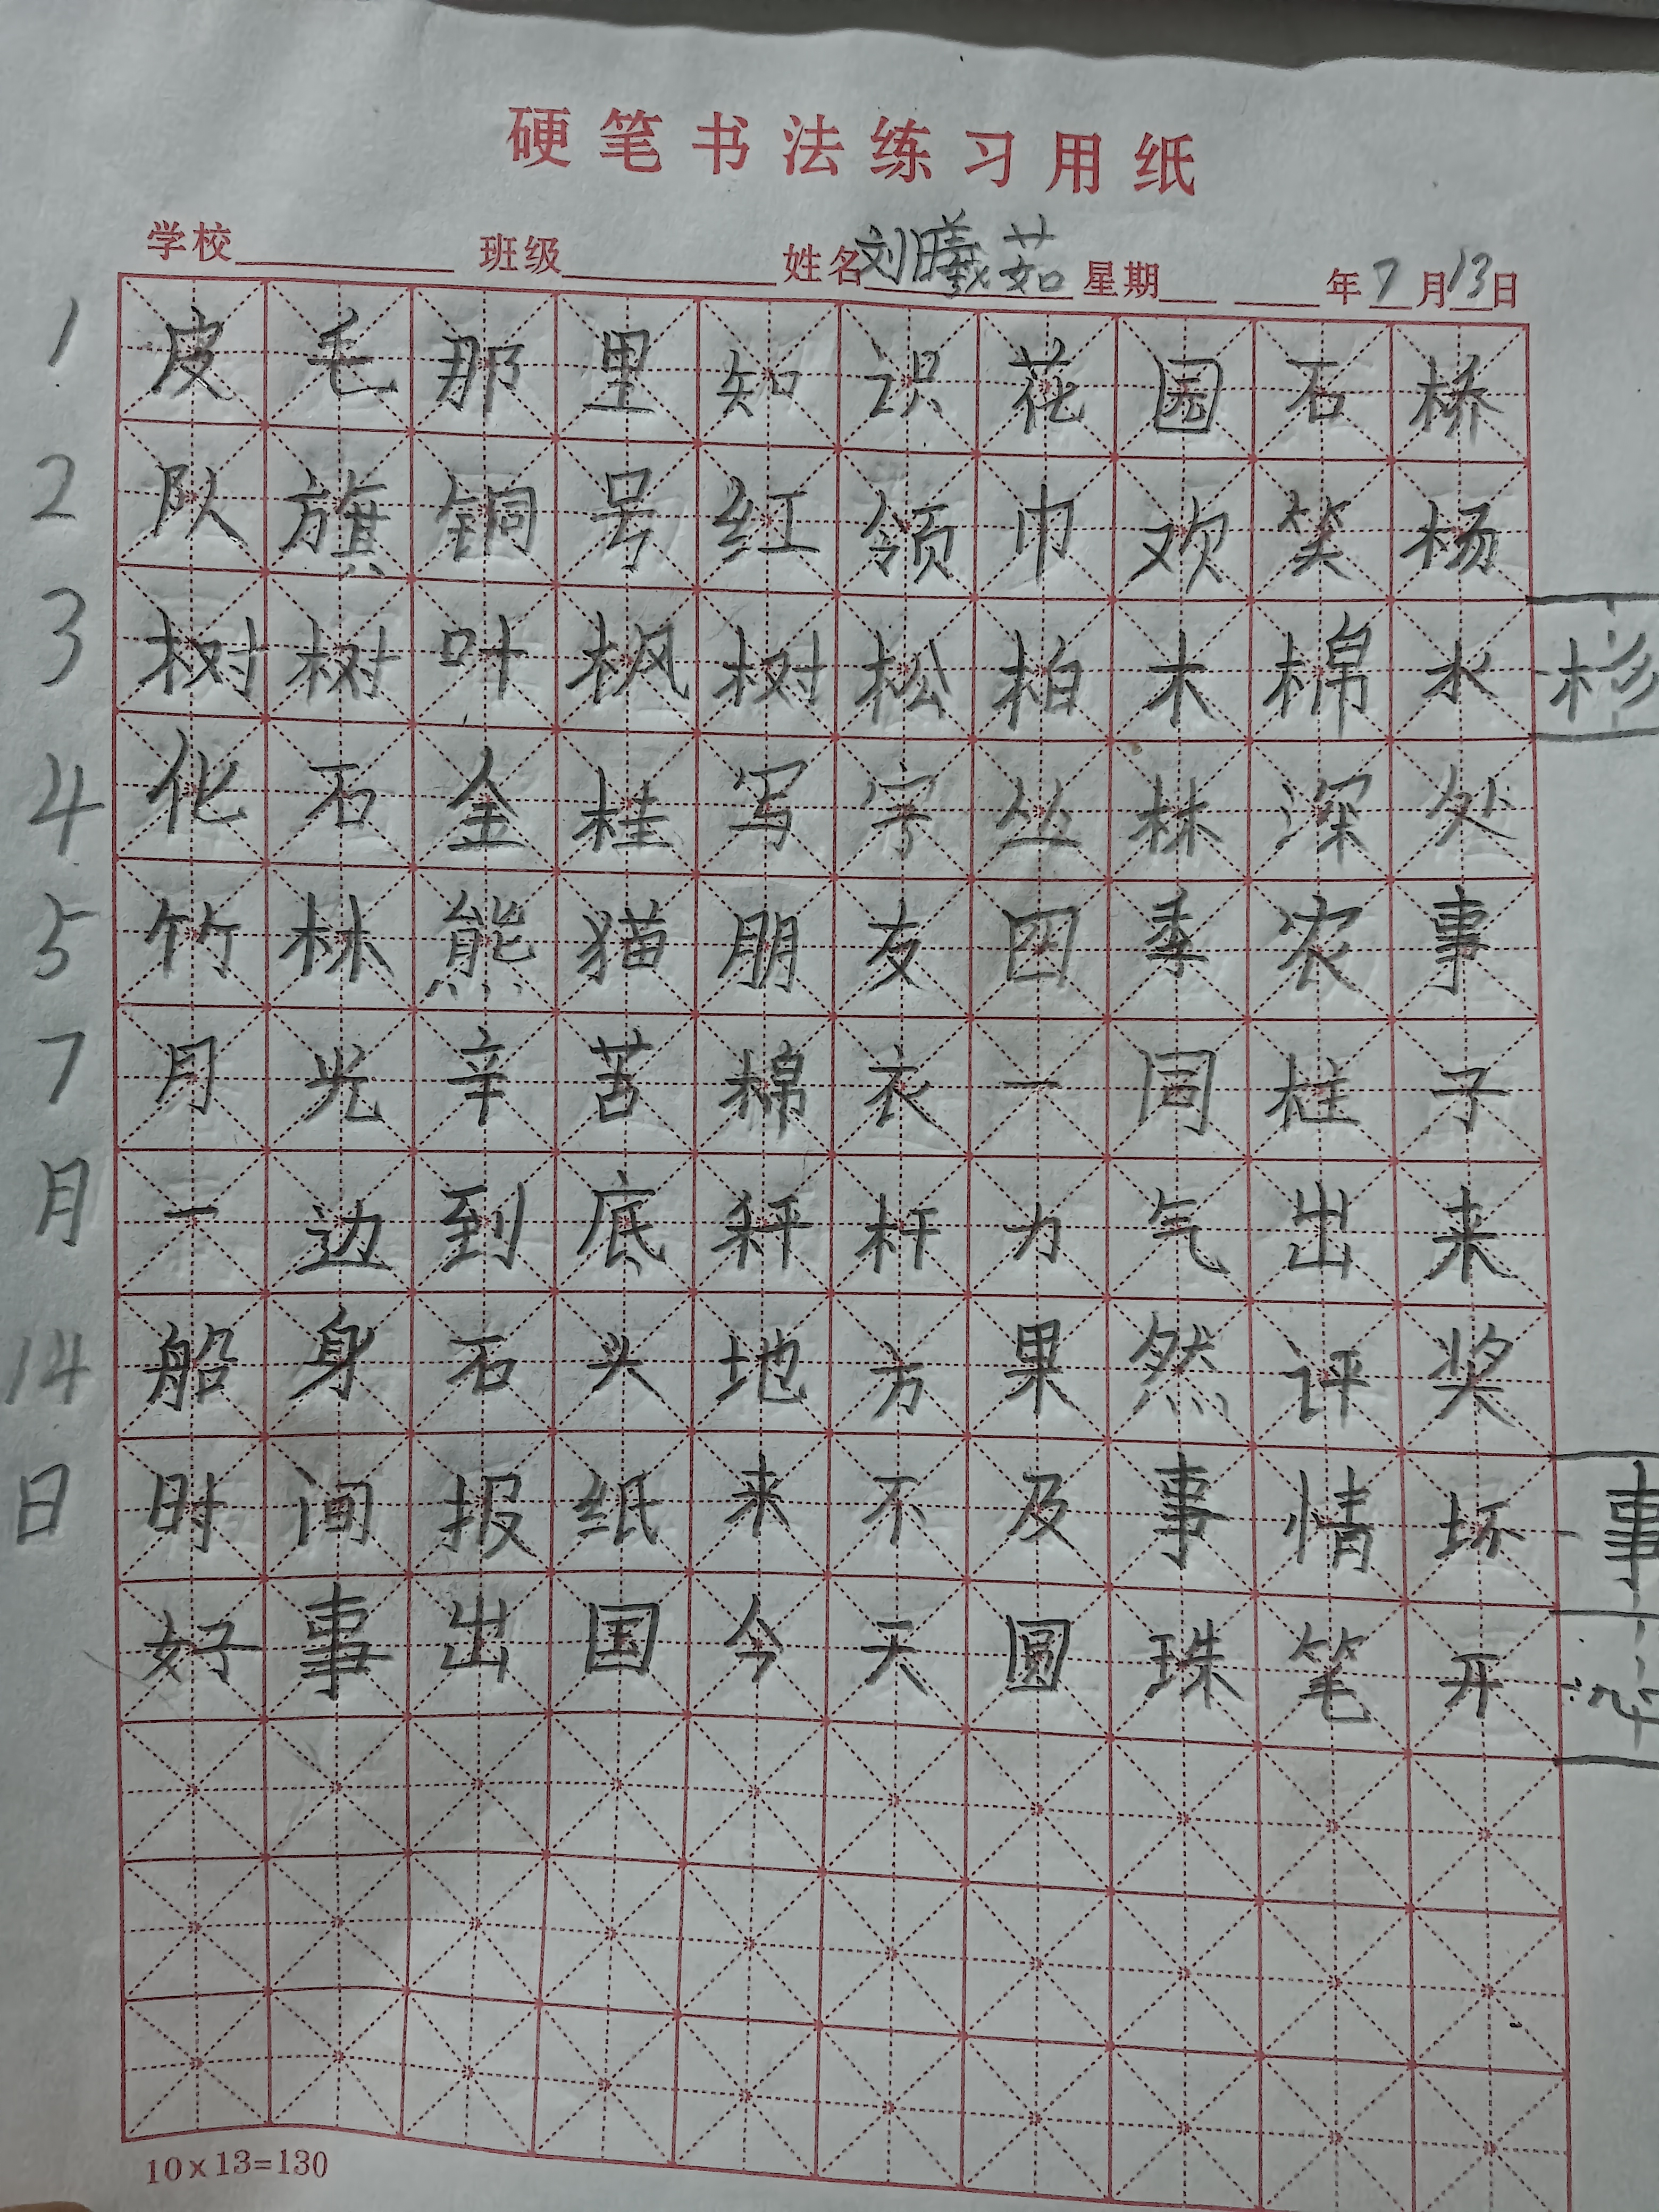 硬笔书法练习用纸
学校 班级 姓名刘曦茹 星期 年7月13日
1 皮毛那里知识花园石桥
2 队旗铜号红领巾欢笑杨
3 树树叶枫树松柏木棉水杉
4 化石金桂写字丛林深处
5 竹林熊猫朋友四季农事
7 月光辛苦棉衣一同柱子
月 一边到底秤杆力气出来
14 船身石头地方果然评奖
日 时间报纸来不及事情坏事
好事出国今天圆珠笔开
10×13=130